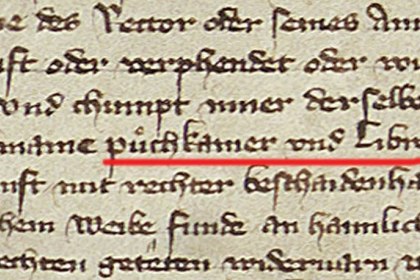 e des Rector oder seines Am
ft oder verphendet oder w
vnd chumpt inner derselb
mame puͦchkamer vnd Libr
nft mit rechter beschaidenha
hem weibe funde an haimlich
echten getëten widerwarn